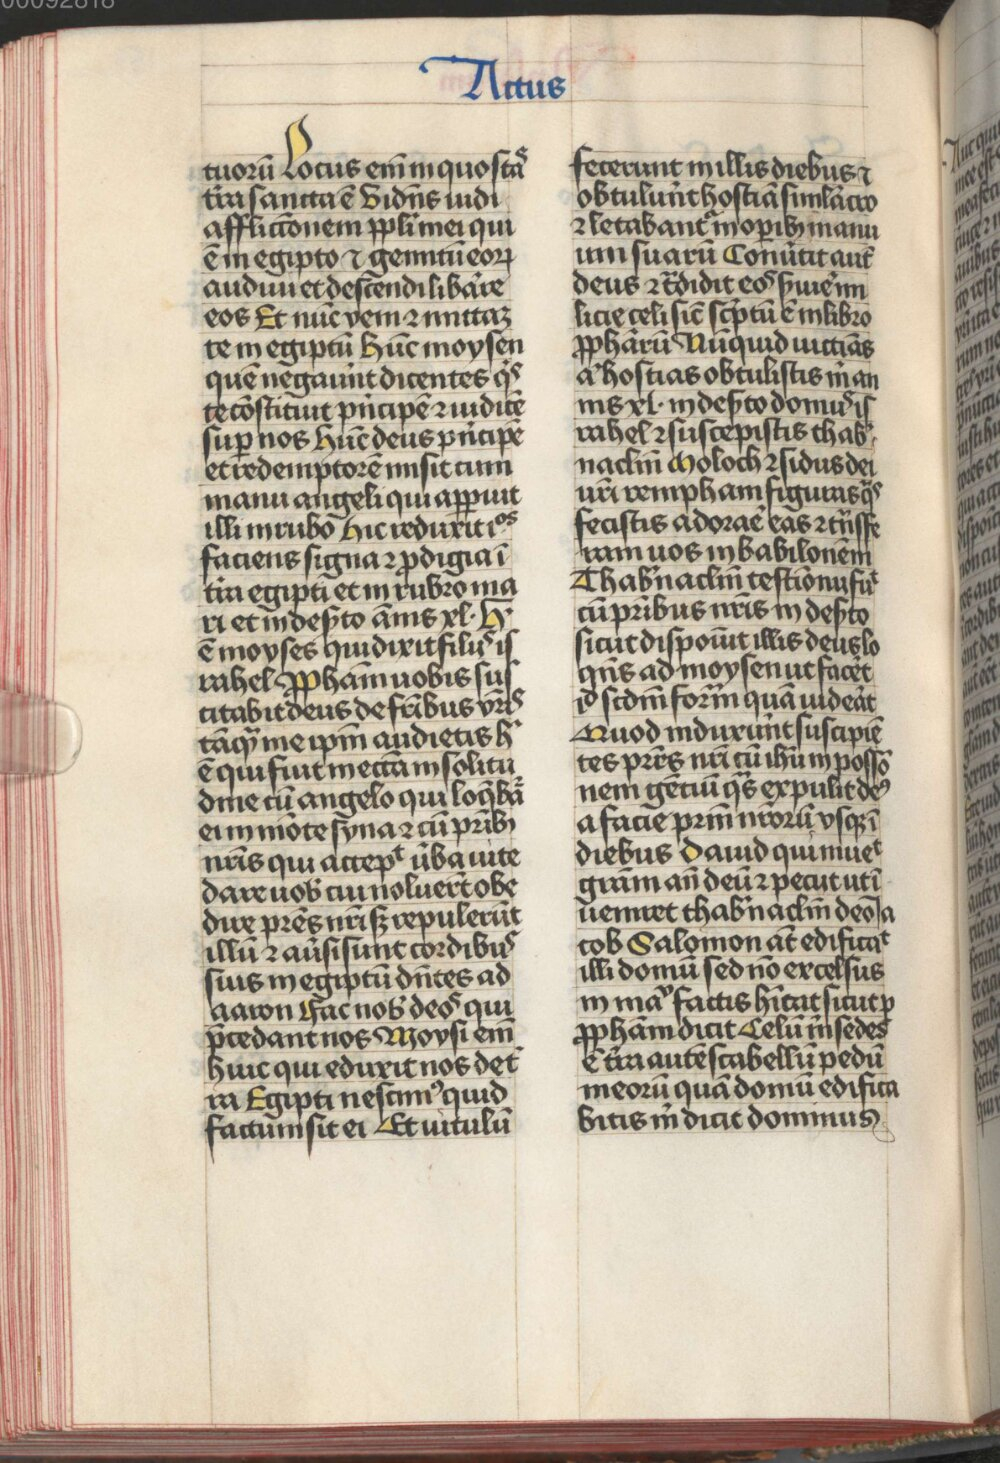 00092818
Actus
tuorū Locus em̄ in quo stas
t̄ra sancta ē Vidn̄s uidi
afflictōnem ppl̄i mei qui
ē in egipto ⁊ gemitū eoꝝ
audiui et descendi lib̄are
eos Et nūc veni ⁊ mittaꝫ
te in egiptū Hūc moysen
quē negauīt dicentes qͥs
te cōstituit pn̄cipē ⁊ iudicē
suꝑ nos Hūc deus pn̄cipē
et redemptorē misit cum
manu angeli qui apparuit
illi in rubo Hic eduxit ilos
faciens signa ⁊ ꝓdigia ī
t̄ra egipti et in rubro ma
ri et in des̄to ān̄is xl. Hic
ē moyses qui dixit filiis is
rahel Ꝓpham uobis sus
citabit deus de fr̄ibus vr̄is
tāqͣ me ip̄m audietis Hic
ē qui fuit in eccāa in solitu
dine cū angelo qui loqͤbat̄
ei in mōte syna ⁊ cū pr̄ibꝫ
nr̄is qui accepͭ ūba uite
dare uob̄ cui noluer̄t obe
dire pr̄es nr̄i sꝫ repulerūt
illū ⁊ aūsi sunt cordibus
suis in egiptū dn̄tes ad
aaron Fac nob̄ deos qui
p̄cedant nos Moysi em̄
huic qui eduxit nos de t̄
ra Egipti nescimꝰ quid
factum sit ei Et uitulū
fecerunt in illis diebus ⁊
obtulūt hostiā simlac̄o
⁊ letabant̄ in oꝑibꝫ manu
um suarū Conūtit aut̄
deus ⁊ t̄didit eos s̄uire mi
licie celi sic̄ sc̄ptū ē in libro
ꝓphārū Nūquid uictiās
aͭ hostias obtulistis m̄ an
nis xl. in des̄to domus is
rahel ⁊ suscepistis thab̄
naclm̄ Moloch ⁊ sidus dei
ur̄i rempham figuras qͣs
fecistis adorae̅ eas ⁊ tn̄sfe
ram uos in babilonem
Thab̄naclm̄ testiōnii fūͭ
cū pr̄ibus nr̄is in des̄to
sicut disposuīt illis deus lo
qn̄s ad moysen ut facēt
id scdm̄ form̄ quā uiderāt
Quod induxūnt suscipiē
tes pr̄es nr̄i cū ihū in possō
nem gētiū qͣs expulit deꝰ
a facie pr̄m nr̄orū vsqꝫ ī
diebus Dauid qui inueͭ
grām an̄ deū ⁊ peciit ut ī
ueniret thab̄naclm̄ deo Ja
cob Salomon at̄ edificaͭ
illi domū sed nō excelsus
in maͮ factis h̄itat sicut ꝑ
ꝓpham dicit Celū m̄ sedes
ē t̄ra autē scabellū pedū
meorū quā domū edifica
bitis m̄ dicit dominus